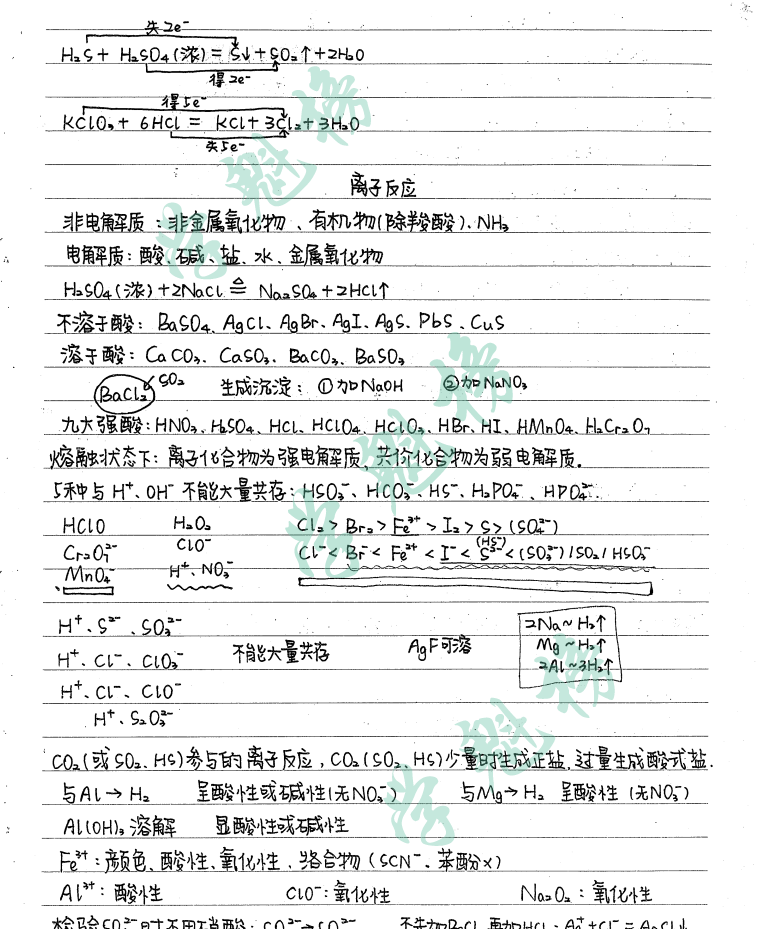 失2e⁻
H₂S + H₂SO₄(浓) = S↓ + SO₂↑ + 2H₂O
得2e⁻
得5e⁻
KClO₃ + 6HCl = KCl + 3Cl₂ + 3H₂O
失5e⁻
离子反应
非电解质：非金属氧化物、有机物(除羧酸)、NH₃
电解质：酸、碱、盐、水、金属氧化物
H₂SO₄(浓) + 2NaCl ≙ Na₂SO₄ + 2HCl↑
不溶于酸：BaSO₄、AgCl、AgBr、AgI、AgS、PbS、CuS
溶于酸：CaCO₃、CaSO₃、BaCO₃、BaSO₃
BaCl₂ SO₂ 生成沉淀：①加NaOH ②加NaNO₃
九大强酸：HNO₃、H₂SO₄、HCl、HClO₄、HClO₃、HBr、HI、HMnO₄、H₂Cr₂O₇
熔融状态下：离子化合物为强电解质，共价化合物为弱电解质．
5种与H⁺、OH⁻不能大量共存：HSO₃⁻、HCO₃⁻、HS⁻、H₂PO₄⁻、HPO₄²⁻
HClO H₂O₂ Cl₂ > Br₂ > Fe³⁺ > I₂ > S > (SO₄²⁻)
Cr₂O₇²⁻ ClO⁻ Cl⁻ < Br⁻ < Fe²⁺ < I⁻ < S²⁻ (HS⁻) < (SO₃²⁻)/SO₂/HSO₃⁻
MnO₄⁻ H⁺、NO₃⁻
H⁺、S²⁻、SO₃²⁻ 2Na~H₂↑
H⁺、Cl⁻、ClO₃⁻ 不能大量共存 AgF可溶 Mg~H₂↑
2Al~3H₂↑
H⁺、Cl⁻、ClO⁻
H⁺、S₂O₃²⁻
CO₂(或SO₂、HS)参与的离子反应，CO₂(SO₂、HS)少量时生成正盐，过量生成酸式盐．
与Al→H₂ 呈酸性或碱性(无NO₃⁻) 与Mg→H₂ 呈酸性(无NO₃⁻)
Al(OH)₃溶解 显酸性或碱性
Fe³⁺：颜色、酸性、氧化性、络合物(SCN⁻、苯酚×)
Al³⁺：酸性 ClO⁻：氧化性 Na₂O₂：氧化性
学魁榜
学魁榜
学魁榜